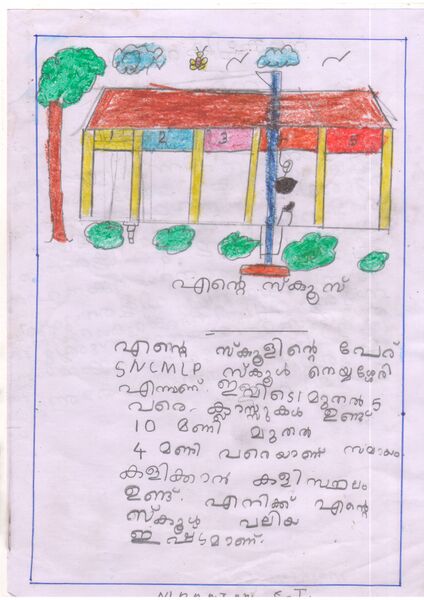 2 3 5
എന്റെ സ്കൂൾ
എന്റെ സ്കൂളിന്റെ പേര്
SNCMLP സ്കൂൾ
എന്നാണ്. ഇവിടെ 1 മുതൽ 5
വരെ ക്ലാസ്സുകൾ ഉണ്ട്.
10 മണി മുതൽ
4 മണി വരെയാണ് സമയം
കളിക്കാൻ കളി സ്ഥലം
ഉണ്ട്. എനിക്ക് എന്റെ
സ്കൂൾ വലിയ
ഇഷ്ടമാണ്.